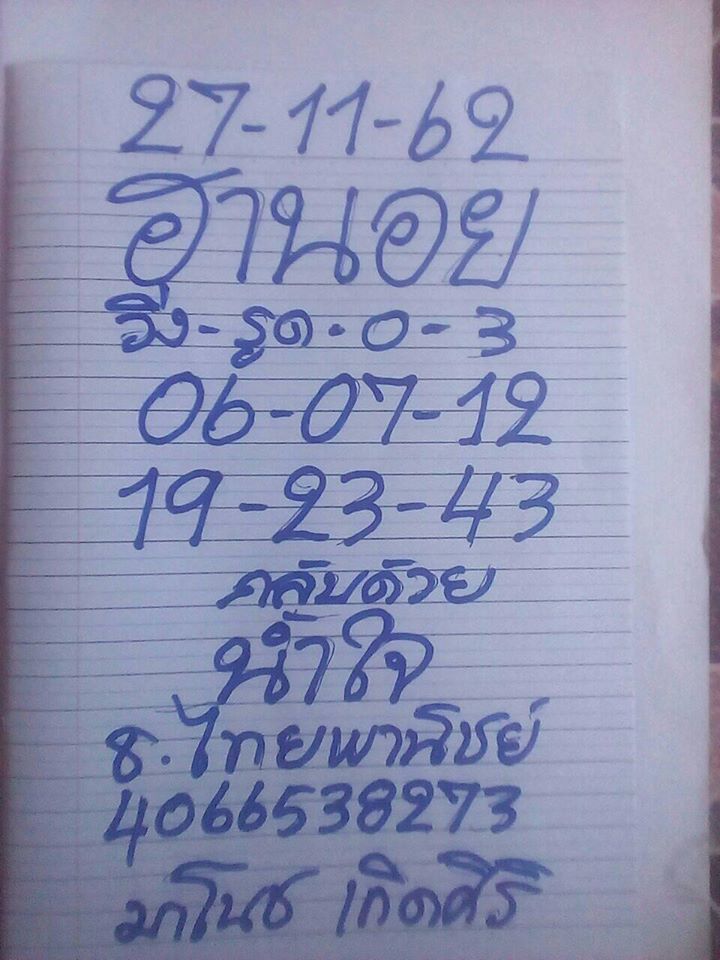 27-11-62
ฮานอย
วิ่ง-รูด-0-3
06-07-12
19-23-43
กลับด้วย
น้ำใจ
ธ.ไทยพานิชย์
4066538273
มาโนช เกิดศิริ